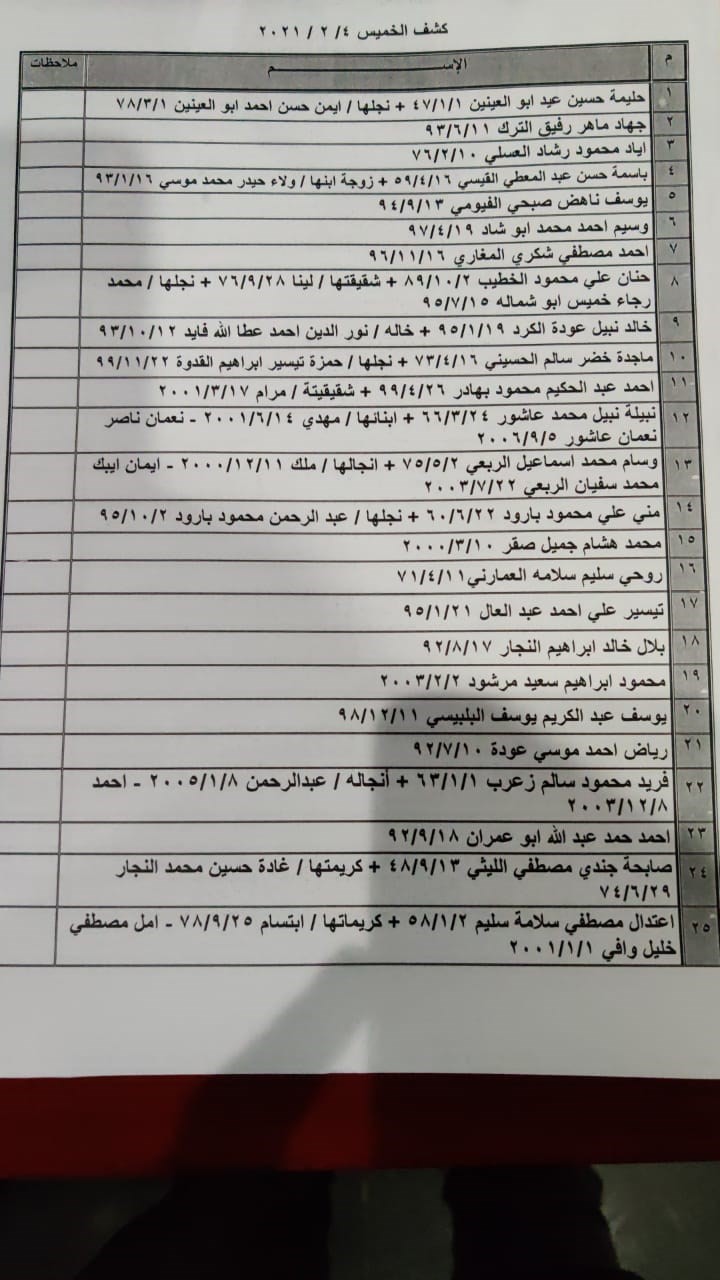 كشف الخميس ٤/ ٢ / ٢٠٢١
م الإســـــــم ملاحظات
١ حليمة حسين عيد ابو العينين ٤٧/١/١ + نجلها / ايمن حسن احمد ابو العينين ٧٨/٣/١
٢ جهاد ماهر رفيق الترك ٩٣/٦/١١
٣ اياد محمود رشاد العسلي ٧٦/٢/١٠
٤ باسمة حسن عبد المعطي القيسي ٥٩/٤/١٦ + زوجة ابنها / ولاء حيدر محمد موسي ٩٣/١/١٦
٥ يوسف ناهض صبحي الفيومي ٩٤/٩/١٣
٦ وسيم احمد محمد ابو شاد ٩٧/٤/١٩
٧ احمد مصطفي شكري المغاري ٩٦/١١/١٦
٨ حنان علي محمود الخطيب ٨٩/١٠/٢ + شقيقتها / لينا ٧٦/٩/٢٨ + نجلها / محمد
رجاء خميس ابو شماله ٩٥/٧/١٥
٩ خالد نبيل عودة الكرد ٩٥/١/١٩ + خاله / نور الدين احمد عطا الله فايد ٩٣/١٠/١٢
١٠ ماجدة خضر سالم الحسيني ٧٣/٤/١٦ + نجلها / حمزة تيسير ابراهيم القدوة ٩٩/١١/٢٢
١١ احمد عبد الحكيم محمود بهادر ٩٩/٤/٢٦ + شقيقيتة / مرام ٢٠٠١/٣/١٧
١٢ نبيلة نبيل محمد عاشور ٦٦/٣/٢٤ + ابنائها / مهدي ٢٠٠١/٦/١٤ - نعمان ناصر
نعمان عاشور ٢٠٠٦/٩/٥
١٣ وسام محمد اسماعيل الربعي ٧٥/٥/٢ + انجالها / ملك ٢٠٠٠/١٢/١١ - ايمان ايبك
محمد سفيان الربعي ٢٠٠٣/٧/٢٢
١٤ مني علي محمود بارود ٦٠/٦/٢٢ + نجلها / عبد الرحمن محمود بارود ٩٥/١٠/٢
١٥ محمد هشام جميل صقر ٢٠٠٠/٣/١٠
١٦ روحي سليم سلامه العمارني ٧١/٤/١١
١٧ تيسير علي احمد عبد العال ٩٥/١/٢١
١٨ بلال خالد ابراهيم النجار ٩٢/٨/١٧
١٩ محمود ابراهيم سعيد مرشود ٢٠٠٣/٢/٢
٢٠ يوسف عبد الكريم يوسف البلبيسي ٩٨/١٢/١١
٢١ رياض احمد موسي عودة ٩٢/٧/١٠
٢٢ فريد محمود سالم زعرب ٦٣/١/١ + أنجاله / عبدالرحمن ٢٠٠٥/١/٨ - احمد
٢٠٠٣/١٢/٨
٢٣ احمد حمد عبد الله ابو عمران ٩٢/٩/١٨
٢٤ صابحة جندي مصطفي الليثي ٤٨/٩/١٣ + كريمتها / غادة حسين محمد النجار
٧٤/٦/٢٩
٢٥ اعتدال مصطفي سلامة سليم ٥٨/١/٢ + كريماتها / ابتسام ٧٨/٩/٢٥ - امل مصطفي
خليل وافي ٢٠٠١/١/١